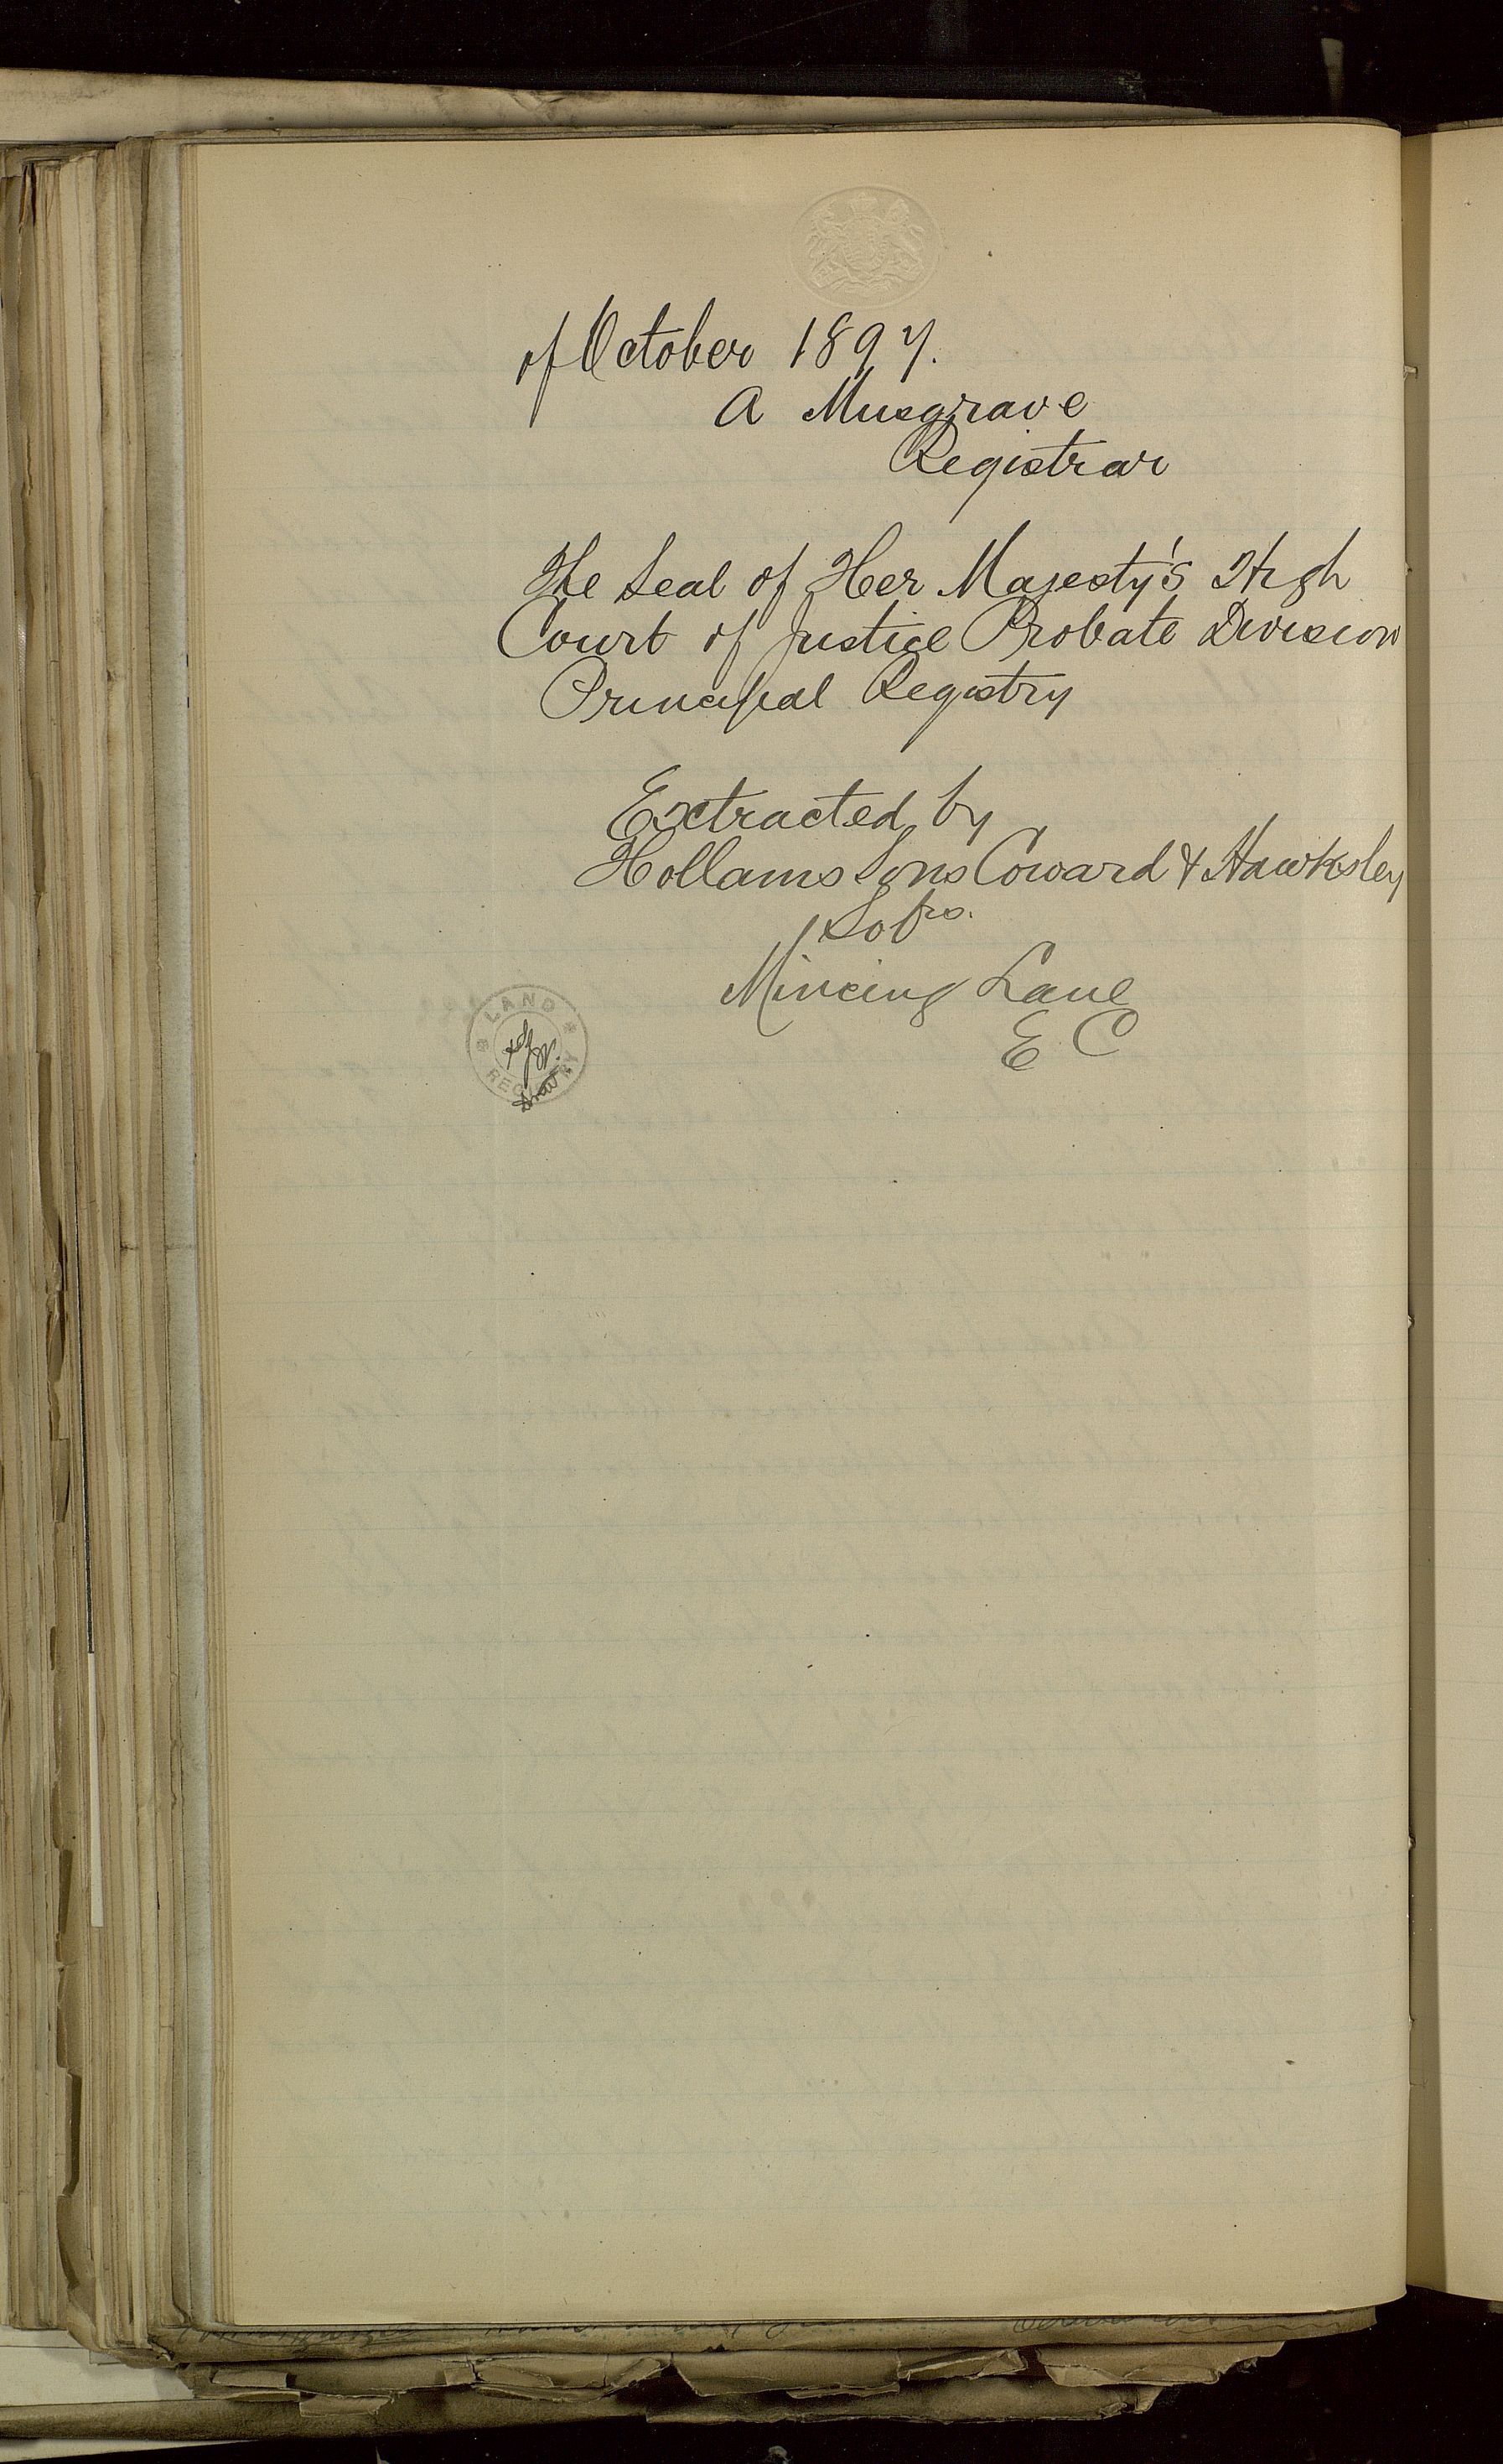 of October 1897.
A Musgrave
Registrar
The Seal of Her Majesty's High
Court of Justice Probate Division
Principal Registry
Extracted by
Hollams Sons Coward & Hawksley
Solrs.
Mincing Lane
E C
LAND
REGISTRY